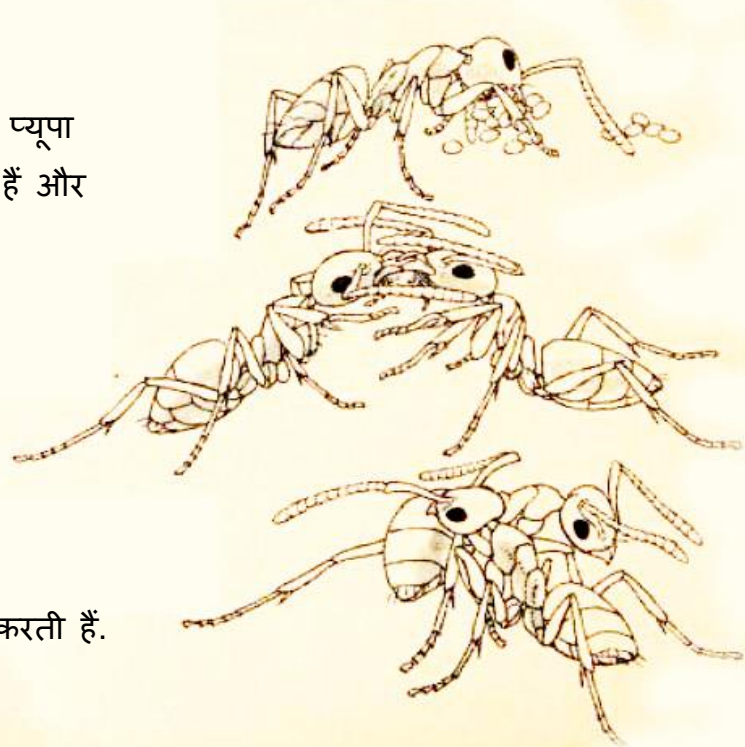 प्यूपा
हैं और
करती हैं.